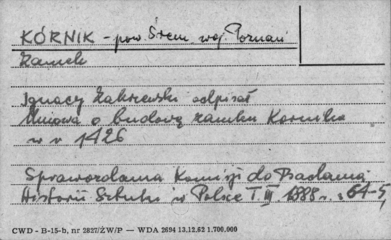 KÓRNIK - pow. Śrem, woj. Poznań
Zamek
Ignacy Zakrzewski odpisał
Umowa o budowę zamku Kórnika
w r 1426
Sprawozdania Komisji do Badania
Historii Sztuki w Polsce T. III 1888 r. s 64-5
CWD - B-15-b, nr 2827/ŻW/P — WDA 2694 13.12.62 1.700.000